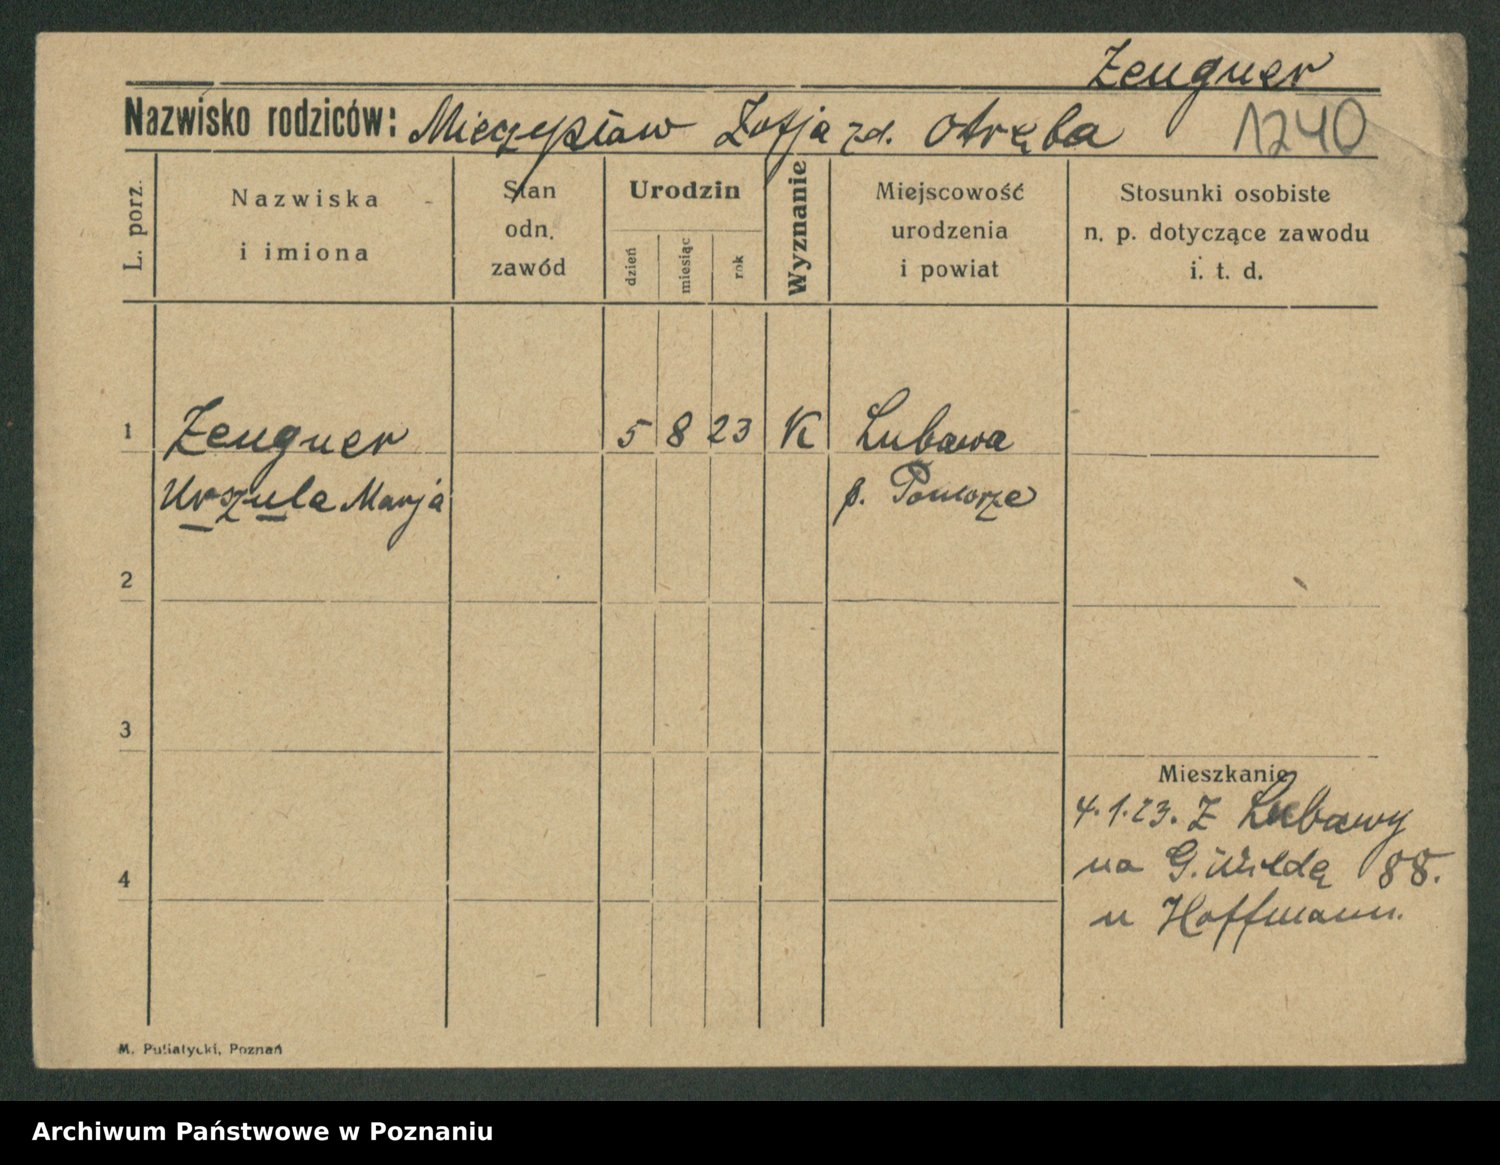 Zeugner
Nazwisko rodziców: Mieczysław Zofja zd. Otręba 1240
L. porz.
Nazwiska
i imiona
Stan
odn.
zawód
Urodzin
dzień miesiąc rok
Wyznanie
Miejscowość
urodzenia
i powiat
Stosunki osobiste
n. p. dotyczące zawodu
i. t. d.
1 Zeugner 5 8 23 K Lubawa
Urszula Marja p. Pomorze
2
3
Mieszkanie
4.1.23. Z Lubawy
na G. Wildą 88.
4
u Hoffmann.
M. Putiatycki, Poznań
Archiwum Państwowe w Poznaniu